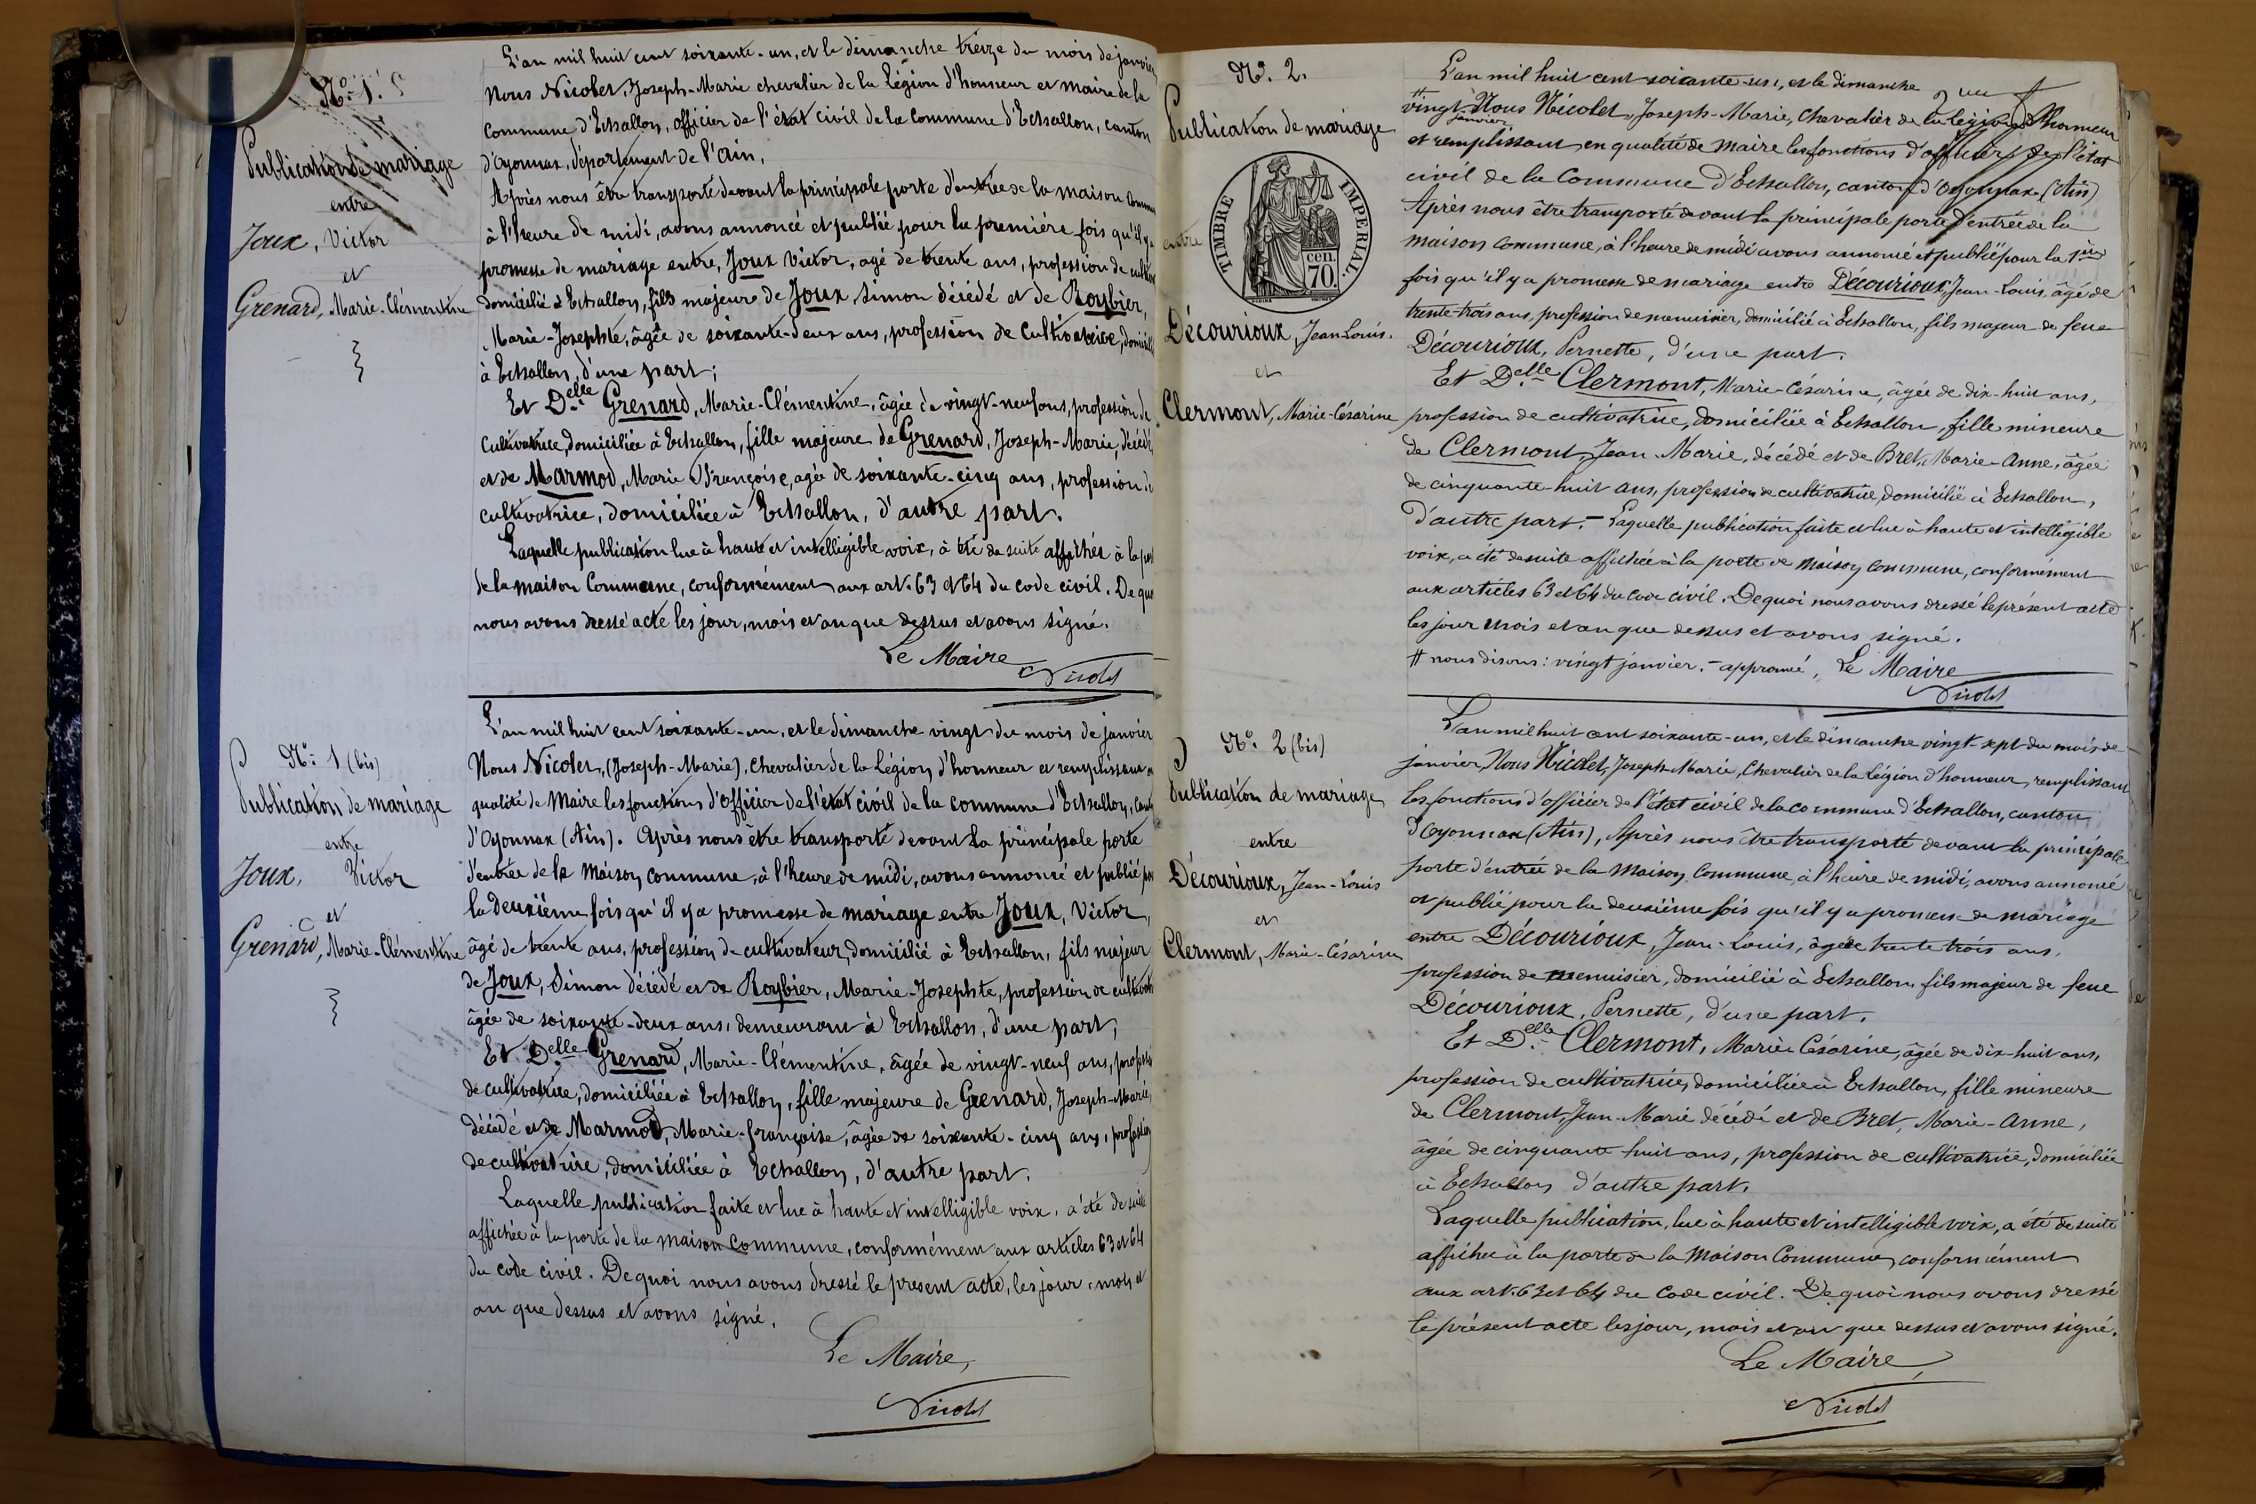 N°. 1.
Publication de mariage
entre
Joux, Victor
et
Grenard, Marie-Clémentine
L'an mil huit cent soixante-un, et le dimanche treize du mois de janvier
Nous Nicolet, Joseph-Marie chevalier de la Légion d'honneur et maire de la
commune d'Echallon, officier de l'état civil de la commune d'Echallon, canton
d'Oyonnax, département de l'Ain.
Après nous être transporté devant la principale porte d'entrée de la maison
à l'heure de midi, avons annoncé et publié pour la première fois qu'il y a
promesse de mariage entre, Joux Victor, agé de trente ans, profession de
domicilié à Echallon, fils majeur de Joux Simon décédé et de Roybier,
Marie-Josephte, âgée de soixante-deux ans, profession de Cultivatrice,
à Echallon, d'une part;
Et Delle Grenard, Marie-Clémentine, âgée de vingt-neuf ans, profession de
cultivatrice, domiciliée à Echallon, fille majeure de Grenard, Joseph-Marie, décédé
et de Marmod, Marie Françoise, agée de soixante-cinq ans, profession de
cultivatrice, domiciliée à Echallon, d'autre part.
Laquelle publication lue à haute et intelligible voix, à été de suite affichée à la
de la maison Commune, conformément aux art. 63 et 64 du code civil. De quoi
nous avons dressé acte les jour, mois et an que dessus et avons signé.
Le Maire
Nicolet
N°. 1 (bis)
Publication de mariage
entre
Joux, Victor
et
Grenard, Marie-Clémentine
L'an mil huit cent soixante-un, et le dimanche vingt du mois de janvier
Nous Nicolet, (Joseph-Marie), chevalier de la Légion d'honneur et remplissant en
qualité de Maire les fonctions d'officier de l'état civil de la commune d'Echallon,
d'Oyonnax (Ain). Après nous être transporté devant la principale porte
d'entrée de la maison commune, à l'heure de midi, avons annoncé et publié pour
la deuxième fois qu'il y a promesse de mariage entre Joux, Victor,
âgé de trente ans, profession de cultivateur, domicilié à Echallon, fils majeur
de Joux, Simon décédé et de Roybier, Marie-Josephte, profession de
âgée de soixante-deux ans, demeurant à Echallon, d'une part;
Et Delle Grenard, Marie-Clémentine, âgée de vingt-neuf ans,
de cultivatrice, domiciliée à Echallon, fille majeure de Grenard, Joseph-Marie,
décédé et de Marmod, Marie-françoise, âgée de soixante-cinq ans, profession
de cultivatrice, domiciliée à Echallon, d'autre part.
Laquelle publication faite et lue à haute et intelligible voix, a été de suite
affichée à la porte de la maison commune, conformément aux articles 63 et 64
du code civil. De quoi nous avons dressé le présent acte, les jour, mois et
an que dessus et avons signé.
Le Maire,
Nicolet
N°. 2.
Publication de mariage
entre
TIMBRE IMPERIAL
cen.
70.
Décourioux, Jean Louis.
et
Clermont, Marie-Césarine
L'an mil huit cent soixante-un, et le dimanche
vingt # Nous Nicolet, Joseph-Marie, Chevalier de la Légion d'Honneur
janvier
et remplissant en qualité de Maire les fonctions d'officier de l'état
civil de la Commune d'Echallon, canton d'Oyonnax (Ain)
Après nous être transporté devant la principale porte d'entrée de la
maison commune, à l'heure de midi avons annoncé et publié pour la 1ère
fois qu'il y a promesse de mariage entre Décourioux, Jean-Louis, âgé de
trente-trois ans, profession de menuisier, domicilié à Echallon, fils majeur de feue
Décourioux, Pernette, d'une part.
Et Delle Clermont, Marie-Césarine, âgée de dix-huit ans,
profession de cultivatrice, domiciliée à Echallon, fille mineure
de Clermont, Jean-Marie, décédé et de Bret, Marie-Anne, âgée
de cinquante-huit ans, profession de cultivatrice, domicilié à Echallon,
d'autre part. - Laquelle publication faite et lue à haute et intelligible
voix, a été de suite affichée à la porte de maison commune, conformément
aux articles 63 et 64 du code civil. De quoi nous avons dressé le présent acte
les jour mois et an que dessus et avons signé.
# nous disons: vingt janvier. - approuvé, Le Maire
Nicolet
N°. 2 (bis)
Publication de mariage
entre
Décourioux, Jean-Louis
et
Clermont, Marie-Césarine
L'an mil huit cent soixante-un, et le dimanche vingt-sept du mois de
janvier, Nous Nicolet, Joseph-Marie, Chevalier de la Légion d'honneur, remplissant
les fonctions d'officier de l'état civil de la commune d'Echallon, canton
d'Oyonnax (Ain), Après nous être transporté devant la principale
porte d'entrée de la Maison Commune, à l'heure de midi, avons annoncé
et publié pour la deuxième fois qu'il y a promesse de mariage
entre Décourioux, Jean-Louis, âgé de trente trois ans,
profession de menuisier, domicilié à Echallon, fils majeur de feue
Décourioux, Pernette, d'une part.
Et Delle Clermont, Marie Césarine, âgée de dix-huit ans,
profession de cultivatrice, domiciliée à Echallon, fille mineure
de Clermont, Jean-Marie décédé et de Bret, Marie-Anne,
âgée de cinquante huit ans, profession de cultivatrice, domiciliée
à Echallon, d'autre part.
Laquelle publication, lue à haute et intelligible voix, a été de suite
affichée à la porte de la Maison Commune, conformément
aux art. 63 et 64 du Code civil. De quoi nous avons dressé
le présent acte les jour, mois et an que dessus et avons signé.
Le Maire,
Nicolet